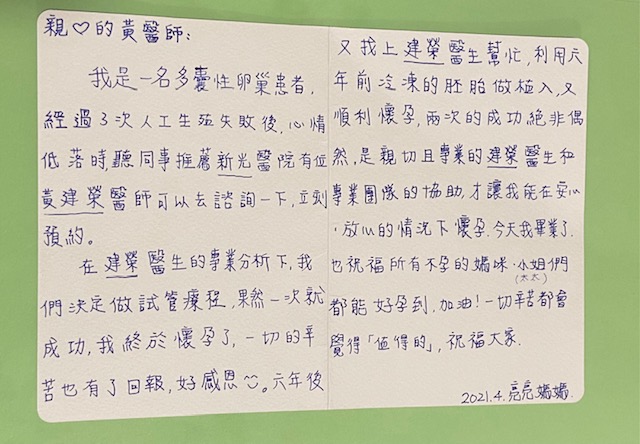 親♡的黃醫師:
我是一名多囊性卵巢患者,
經過3次人工生殖失敗後,心情
低落時,聽同事推薦新光醫院有位
黃建榮醫師可以去諮詢一下,立刻
預約。
在建榮醫生的專業分析下,我
們決定做試管療程,果然一次就
成功,我終於懷孕了,一切的辛
苦也有了回報,好感恩☺。六年後
又找上建榮醫生幫忙,利用六
年前冷凍的胚胎做植入,又
順利懷孕,兩次的成功絕非偶
然,是親切且專業的建榮醫生和
專業團隊的協助,才讓我能在安心
、放心的情況下懷孕.今天我畢業了.
也祝福所有不孕的媽咪、小姐們
(太太)
都能好孕到,加油!一切辛苦都會
覺得「值得的」,祝福大家.
2021.4.亮亮媽媽.